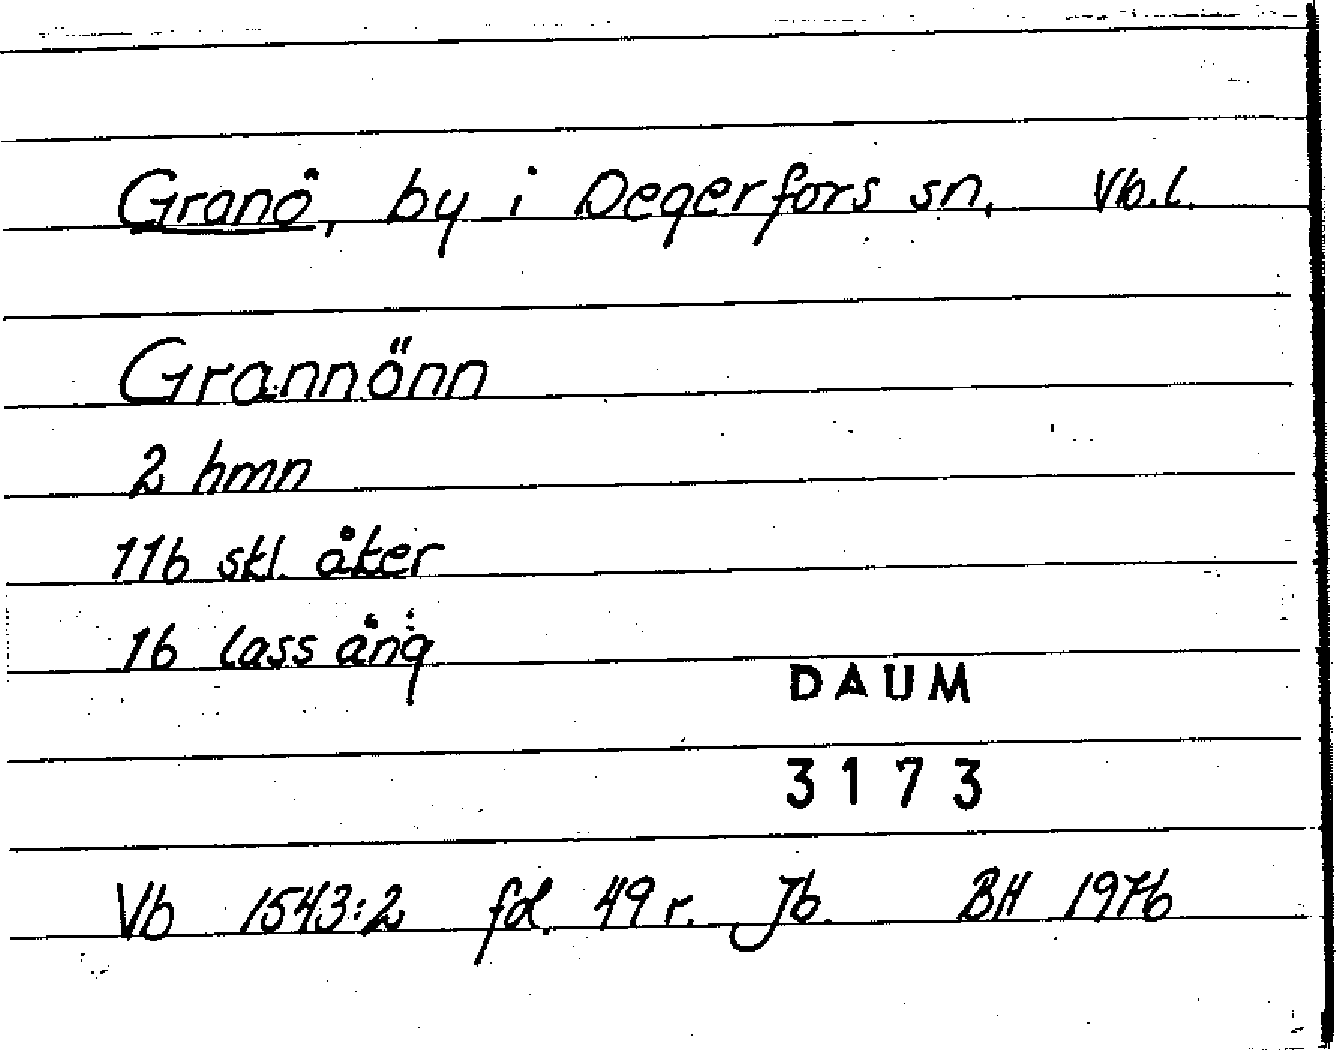 Granö, by i Degerfors sn, Vb.l.
Grannönn
2 hmn
116 skl. åker
16 lass äng
DAUM
3173
Vb 1543:2 fol. 49 r. Jb. BH 1976